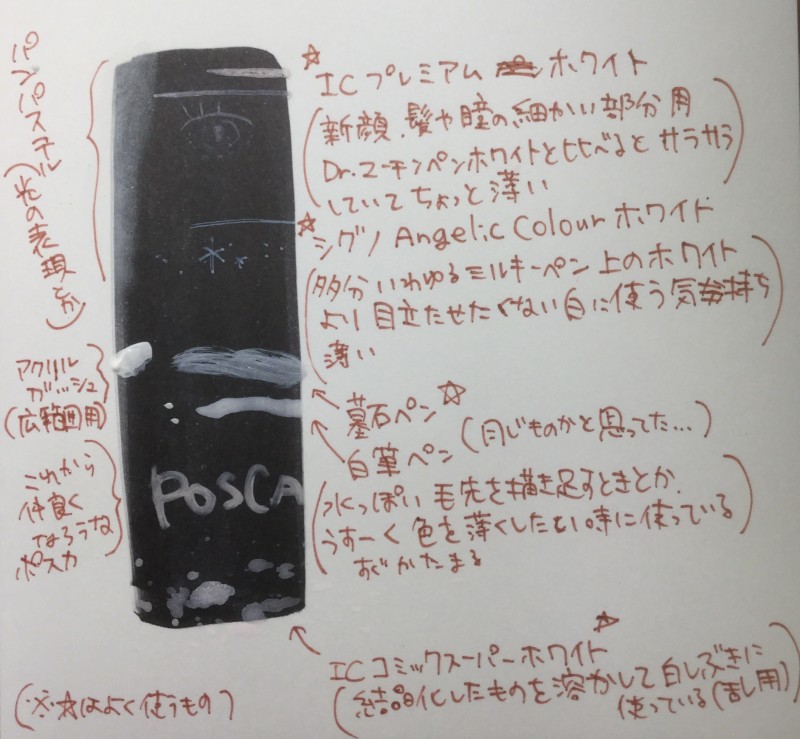 パンパステル(光の表現とか)
☆ICプレミアム ホワイト
(新顔、髪や瞳の細かい部分用
Dr.マーチンペンホワイトと比べると サラサラ
していて ちょっと薄い)
☆シグノ Angelic Colour ホワイト
(多分 いわゆる ミルキーペン 上のホワイト
より 目立たせたくない 白に使う 気持ち
薄い)
アクリル
ガッシュ
(広範囲用)
墓石ペン☆
白筆ペン (同じものかと思ってた…)
(水っぽい 毛先を描き足すときとか、
うすーく 色を薄くしたい時に使っている
すぐかたまる)
POSCA
これから
仲良く
なろうな
ポスカ
ICコミックスーパーホワイト☆
(結晶化したものを溶かして 白しぶきに
使っている(乱用))
(※☆はよく使うもの)